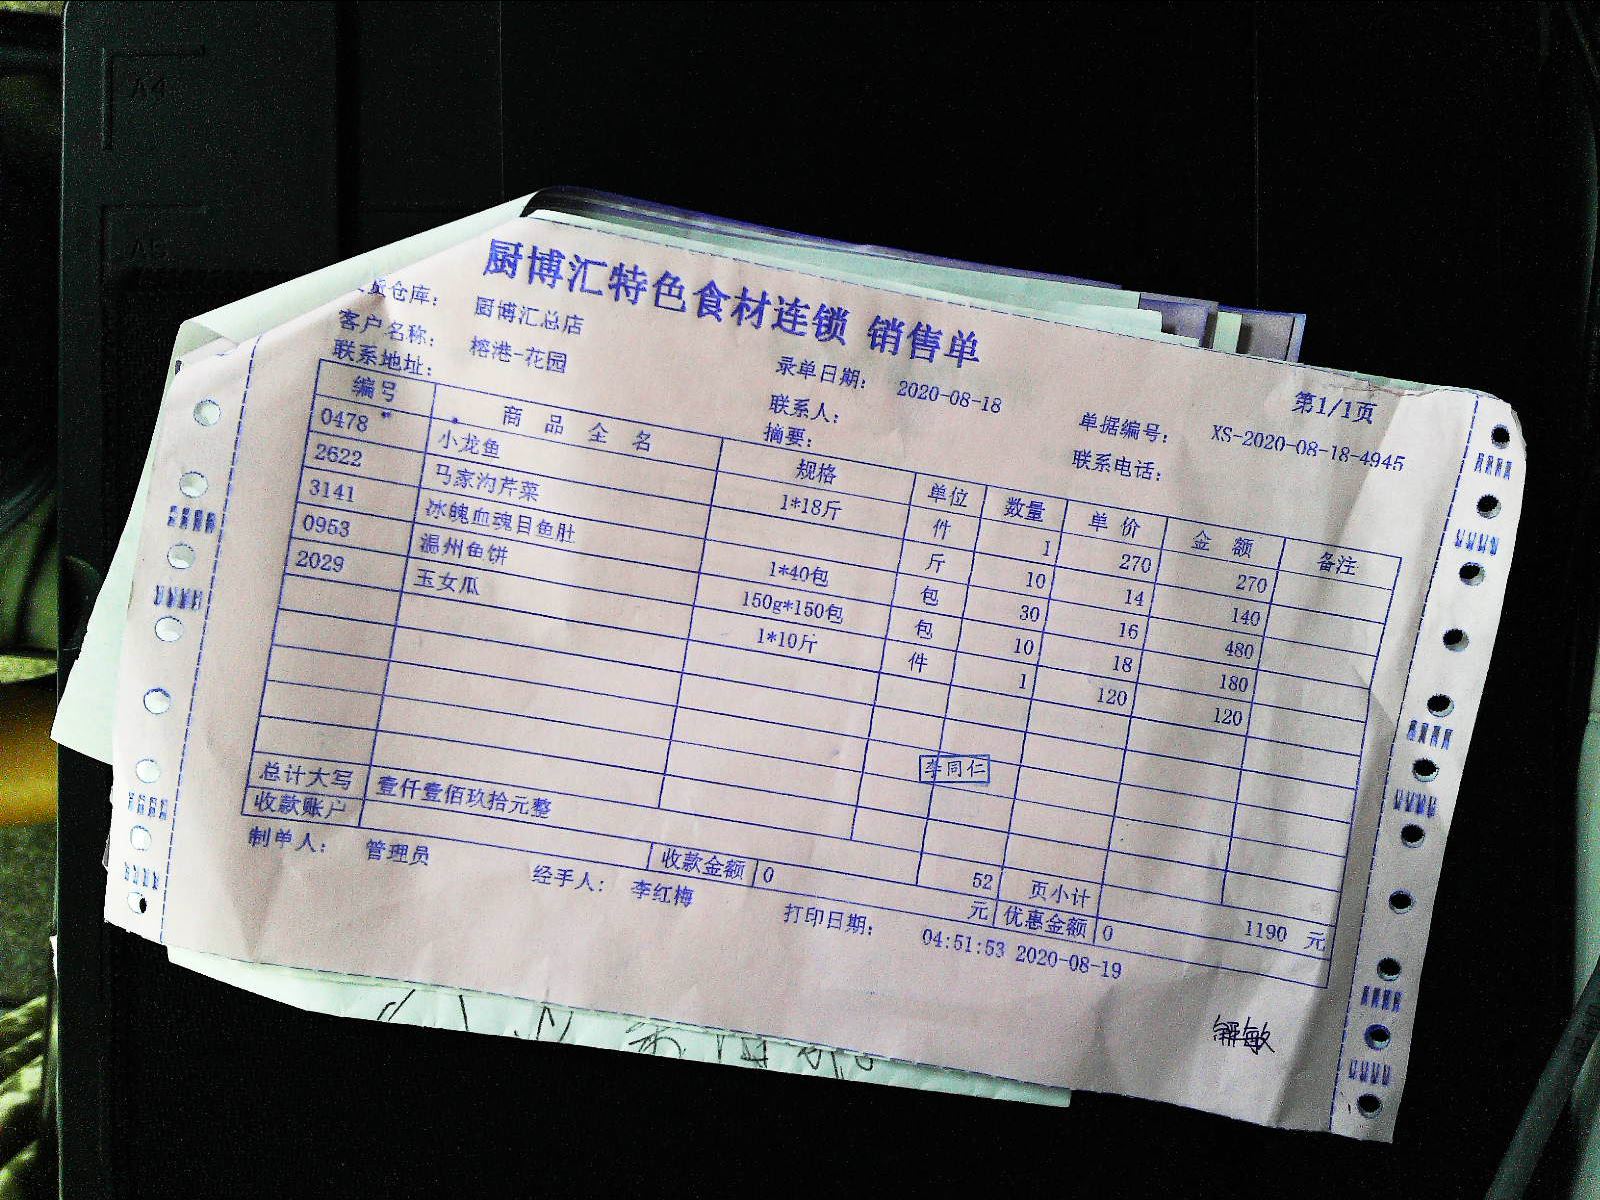 厨博汇特色食材连锁 销售单
货仓库： 厨博汇总店 录单日期： 2020-08-18 第1/1页
客户名称： 榕港-花园 联系人： 单据编号： XS-2020-08-18-4945
联系地址： 摘要： 联系电话：
编号 商品全名 规格 单位 数量 单价 金额 备注
0478 小龙鱼 1*18斤 件 1 270 270
2622 马家沟芹菜 斤 10 14 140
3141 冰魄血魂目鱼肚 1*40包 包 30 16 480
0953 温州鱼饼 150g*150包 包 10 18 180
2029 玉女瓜 1*10斤 件 1 120 120
李同仁
总计大写 壹仟壹佰玖拾元整 52 页小计 1190 元
收款账户 收款金额 0 元 优惠金额 0
制单人： 管理员 经手人： 李红梅 打印日期： 04:51:53 2020-08-19
A4
A5